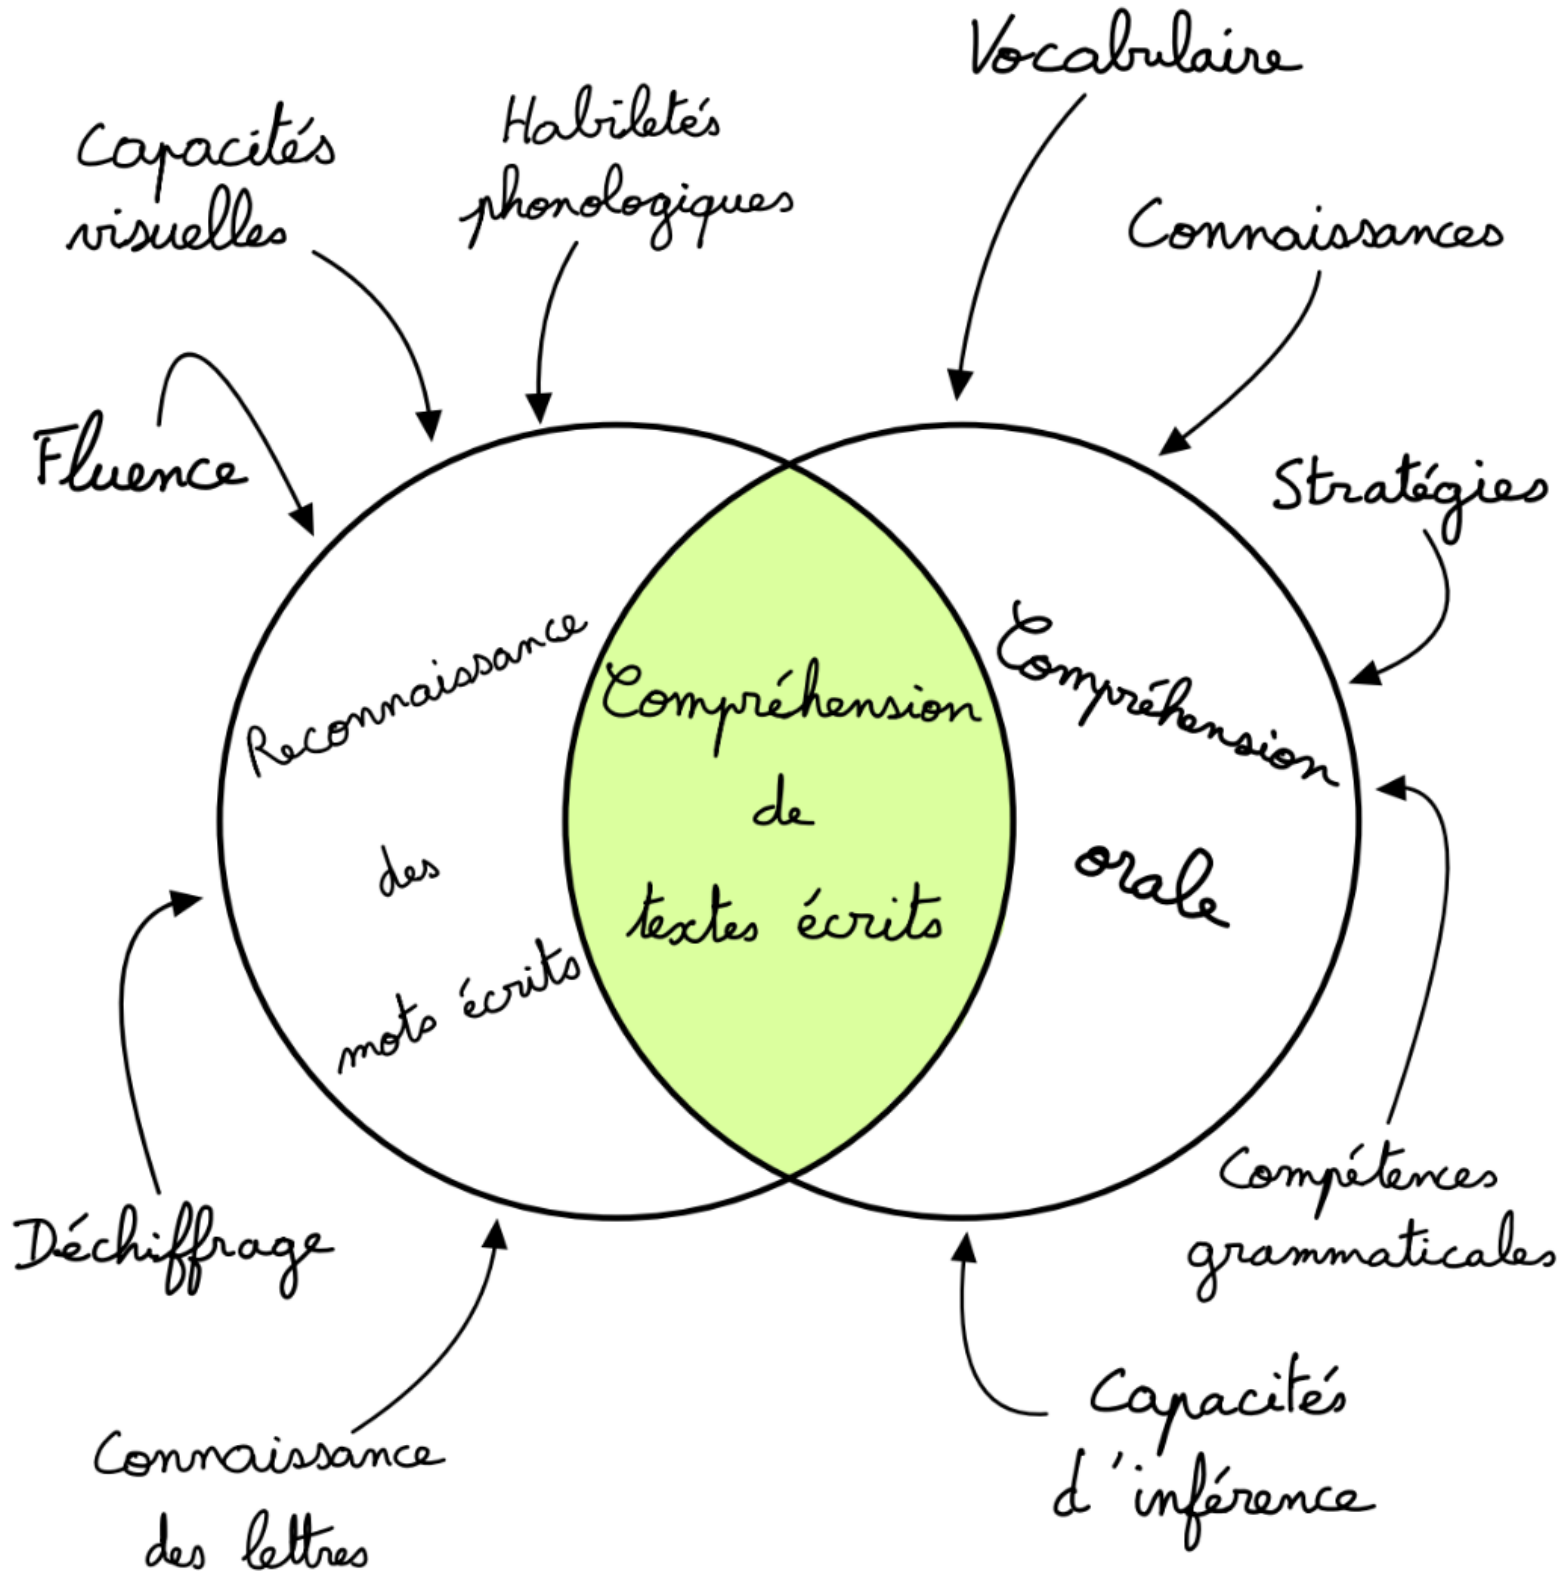 Vocabulaire
Capacités
visuelles
Habiletés
phonologiques
Connaissances
Fluence
Stratégies
Reconnaissance
des
mots écrits
Compréhension
de
textes écrits
Compréhension
orale
Déchiffrage
Compétences
grammaticales
Connaissance
des lettres
Capacités
d'inférence